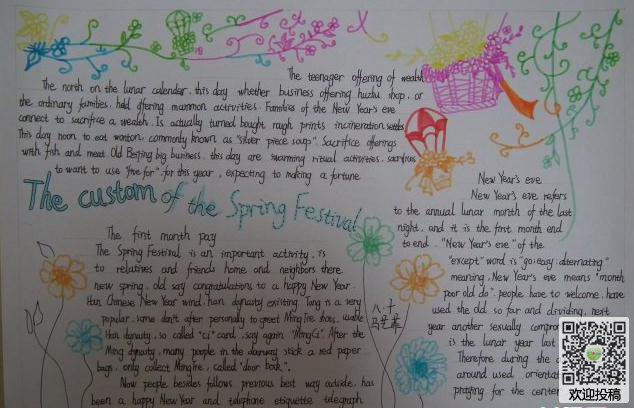 The teenager offering of wealth
The north on the lunar calendar, this day whether business offering huzhu shop, or
the ordinary families, hold offering mammon activities. Families of the New Year's eve
connect to sacrifice a wealth. Is actually turned bought rough prints incineration
This day noon to eat wonton, commonly known as "silver piece soup". Sacrifice offerings
with fish and meat. Old Beijing big business, this day are swarming ritual activities, sacrifices
to want to use "five for", for this year, expecting to making a fortune.
The custom of the Spring Festival
The first month pay
The Spring Festival is an important activity, is
to relatives and friends home and neighbors there
new spring, old say congratulations to a happy New Year.
Han Chinese New Year wind, han dynasty existing. Tang is a very
popular, some don't after personally to greet MingTie shots, usable
Han dynasty, so called "ci" card, say again "MingCi". After the
Ming dynasty, many people in the doorway stick a red paper
bags, only collect MingTie, called "door book".
Now people besides follows previous best way outside, has
been a happy New Year and telephone etiquette telegraph
New Year's eve
New Year's eve refers
to the annual lunar month of the last
night, and it is the first month end
to end. "New Year's eve" of the
"except" word is "go; easy; alternating"
meaning, New Year's eve means "month
poor old do". people have to welcome, have
used the old so far and dividing, next
year another sexually
is the lunar year last
Therefore during the
around used
praying for the
八、十
马艺菲
欢迎投稿